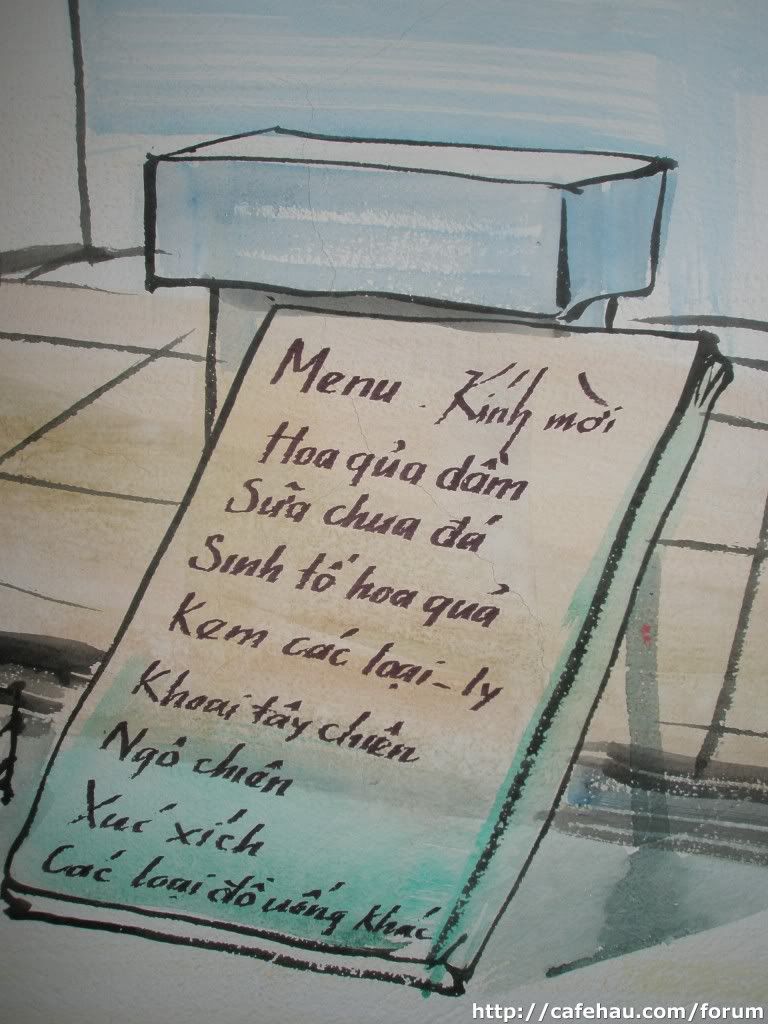 Menu . Kính mời
Hoa quả dầm
Sữa chua đá
Sinh tố hoa quả
Kem các loại - ly
Khoai tây chiên
Ngô chiên
Xúc xích
Các loại đồ uống khác
http://cafehau.com/forum